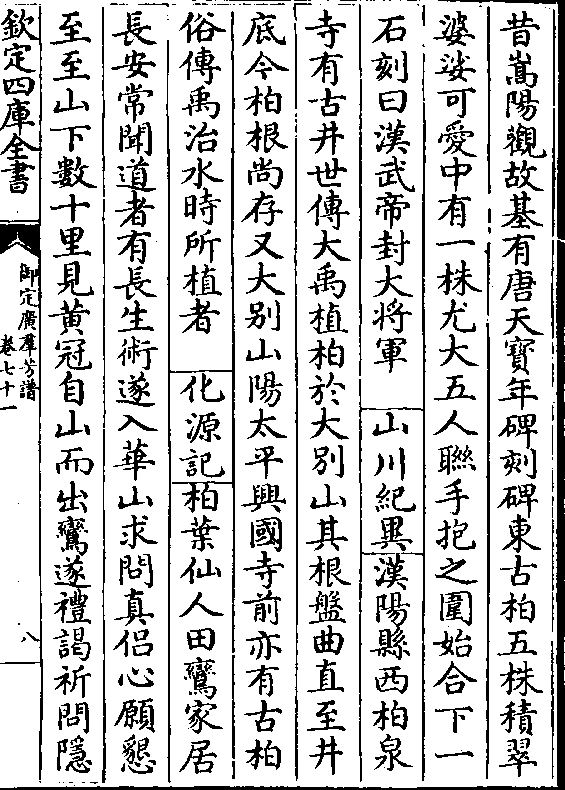 昔嵩陽觀故基有唐天寳年碑刻碑東古柏五株積翠
婆娑可愛中有一株尤大五人聯手抱之圍始合下一
石刻曰漢武帝封大将軍　山川紀異漢陽縣西柏泉
寺有古井世傳大禹植柏於大别山其根盤曲直至井
底今柏根尚存又大别山陽太平興國寺前亦有古柏
俗傳禹治水時所植者　化源記柏葉仙人田鸞家居
長安常聞道者有長生術遂入華山求問真侣心願懇
至至山下數十里見黄冠自山而出鸞遂禮謁祈問隱
欽定四庫全書
御定廣羣芳譜
卷七十一
八